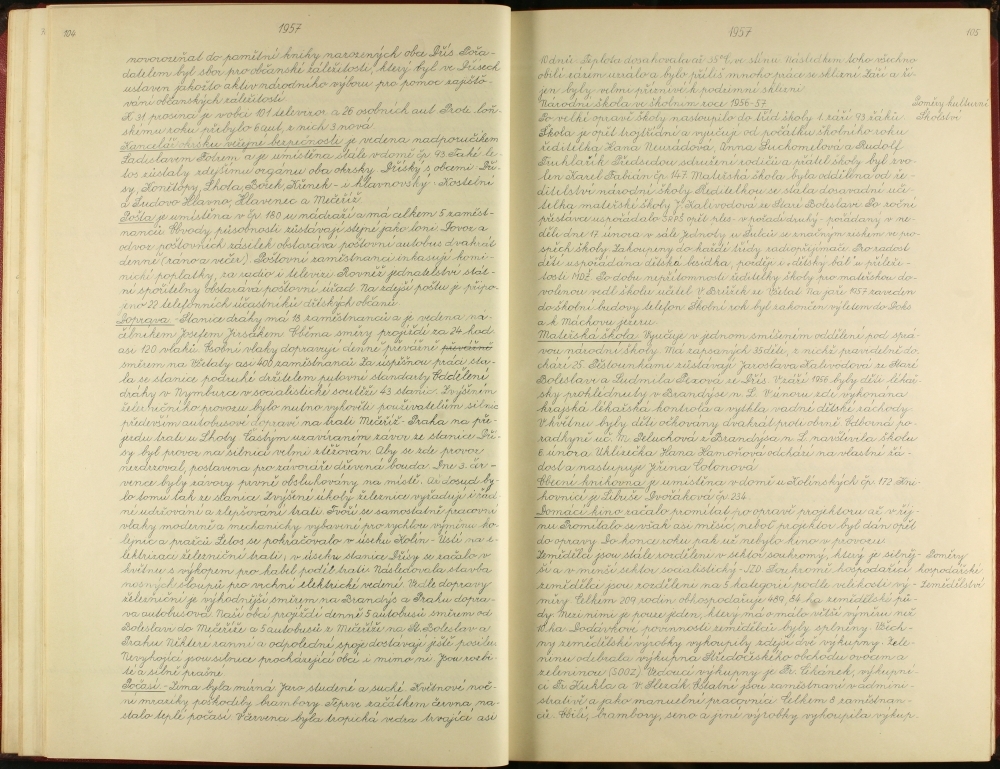 104
1957
novorozeňat do pamětní knihy narozených obce Dřís. Pořa-
datelem byl sbor pro občanské záležitosti, který byl ve Dřísech
ustaven jakožto aktiv národního výboru pro pomoc zajiště-
vání občanských záležitostí.
K 31. prosinci je v obci 101 televizor a 26 osobních aut. Proti loň-
skému roku přibylo 6 aut, z nich 3 nová.
Kancelář okrsku veřejné bezpečnosti je vedena nadporučíkem
Ladislavem Fotrem a je umístěna stále v domě čp. 93. Také le-
tos zůstaly zdejšímu orgánu oba okrsky. Dříský s obcemi: Dří-
sy, Konětopy, Lhota, Borek, Křenek - a hlavnovský - Kostelní
a Sudovo Hlavno, Hlavenec a Mečeříž.
Pošta je umístěna v čp. 180 u nádraží a má celkem 5 zaměst-
nanců. Obvody působnosti zůstávají stejné jako loni. Dovoz a
odvoz poštovních zásilek obstarává poštovní autobus dvakrát
denně (ráno a večer). Poštovní zaměstnanci inkasují komi-
nické poplatky, za radio i televizi. Rovněž jednatelství stát-
ní spořitelny obstarává poštovní úřad. Na zdejší poštu je připo-
jeno 22 telefonních účastníků dříských občanů.
Doprava - Stanice dráhy má 18 zaměstnanců a je vedena ná-
čelníkem Josefem Jirsákem. Oběma směry projíždí za 24 hod.
asi 120 vlaků. Osobní vlaky dopravují denně převážně převážně
směrem na Všetaty asi 400 zaměstnanců. Za úspěšnou práci sta-
la se stanice podruhé držitelem putovní standarty Oddělení
dráhy v Nymburce v socialistické soutěži 43 stanic. Zvýšením
železničního provozu bylo nutno vyhovět používatelům silnic
především autobusové dopravě na trati Mečeříž - Praha na pře-
jezdu trati u Lhoty. Častým uzavíráním závor ze stanice Dří-
sy byl provoz na silnici velmi ztěžován. Aby se zde provoz
nezdržoval, postavena pro závoráře dřevěná bouda. Dne 3. čer-
vence byly závory prvně obsluhovány na místě. Až dosud by-
lo tomu tak ze stanice. Zvýšené úkoly železnice vyžadují i řád-
né udržování a zlepšování trati. Tvoří se samostatné pracovní
vlaky moderně a mechanicky vybavené pro rychlou výměnu ko-
lejnic a pražců. Letos se pokračovalo v úseku Kolín - Ústí na e-
lektrizaci železniční trati, v úseku stanice Dřísy se začalo v
květnu s výkopem pro kabel podél trati. Následovala stavba
nosných sloupů pro vrchní elektrické vedení. Vedle dopravy
železniční je výhodnější směrem na Brandýs a Prahu dopra-
va autobusová. Naší obcí projíždí denně 5 autobusů směrem od
Boleslavi do Mečeříže a 5 autobusů z Mečeříže na St. Boleslav a
Prahu. Některé ranní a odpolední spoje dostávají ještě posilu.
Nevyhovující jsou silnice procházející obcí i mimo ní. Jsou rozbi-
té a silně prašné.
Počasí - Zima byla mírná. Jaro studené a suché. Květnové noč-
ní mrazíky poškodily brambory. Teprve začátkem června, na-
stalo teplé počasí. V červenci byla tropická vedra trvající asi
1957
105
týden. Teplota dosahovala až 35° C ve stínu. Následkem toho všechno
obilí rázem uzrálo a bylo příliš mnoho práce se sklizní. Září a ří-
jen byly velmi příznivé k podzimní sklizni.
Národní škola ve školním roce 1956-57.
Poměry kulturní
Školství
Po velké opravě školy nastoupilo do tříd školy 1. září 93 žáků.
Škola je opět trojtřídní a vyučuje od počátku školního roku
ředitelka Hana Neuradová, Anna Suchomelová a Rudolf
Truhlařík. Předsedou sdružení rodičů a přátel školy byl zvo-
len Karel Fabián čp. 147. Mateřská škola byla oddělena od ře-
ditelství národní školy. Ředitelkou se stala dosavadní uči-
telka mateřské školy J. Kalivodová ze Staré Boleslavi. Po roční
přestávce uspořádalo SRPŠ opět ples - v pořadí druhý - pořádaný v ne-
děli dne 17. února v sále Jednoty u Šulců se značným ziskem ve pro-
spěch školy. Zakoupeny do každé třídy radiopřijímače. Pro radost
dětí uspořádána dětská besídka, později i dětský bál u příleži-
tosti MDŽ. Po dobu nepřítomnosti ředitelky školy pro mateřskou do-
volenou vedl školu učitel V. Brůžek ze Všetat. Na jaře 1957 zaveden
do školní budovy telefon. Školní rok byl zakončen výletem do Doks
a k Máchovu jezeru.
Mateřská škola. Vyučuje v jednom smíšeném oddělení pod sprá-
vou národní školy. Má zapsaných 35 dětí, z nichž pravidelně do-
chází 25. Pěstounkami zůstávají Jaroslava Kalivodová ze Staré
Boleslavi a Ludmila Pixová ze Dřís. V září 1956 byly děti lékař-
sky prohlédnuty v Brandýse n. L. V únoru zde vykonána
krajská lékařská kontrola a vytkla vadné dětské záchody.
V květnu byly děti očkovány dvakrát proti obrně. Odborná po-
radkyně uč. M. Peluchová z Brandýsa n. L. navštívila školu
6. února. Uklizečka Hana Hamoňová odchází na vlastní žá-
dost a nastupuje Jiřina Colonová.
Obecní knihovna je umístěna v domě u Kolínských čp. 172. Kni-
hovnicí je Libuše Dvořáková čp. 234.
Domácí kino začalo promítat po opravě projektoru až v říj-
nu. Promítalo se však asi měsíc, neboť projektor byl dán opět
do opravy. Do konce roku pak už nebylo kino v provozu.
Zemědělci jsou stále rozděleni v sektor soukromý, který je silněj-
Poměry
ší a v menší sektor socialistický - JZD. Soukromě hospodařící
hospodářské
zemědělci jsou rozděleni na 5 kategorií podle velikosti vý-
- Zemědělství
měry. Celkem 209 rodin obhospodařuje 489,54 ha zemědělské pů-
dy. Mezi nimi je pouze jeden, který má o málo větší výměru než
10 ha. Dodávkové povinnosti zemědělců byly splněny. Všech-
ny zemědělské výrobky vykoupily zdejší dvě výkupny. Zele-
ninu odebrala výkupna Středočeského obchodu ovocem a
zeleninou (SOOZ). Vedoucí výkupny je Fr. Cihánek, výkupní-
ci Fr. Kuhla a V. Slezák. Ostatní jsou zaměstnáni v admini-
strativě a jako manuelní pracovníci. Celkem 8 zaměstnan-
ců. Obilí, brambory, seno a jiné výrobky vykoupila výkup-